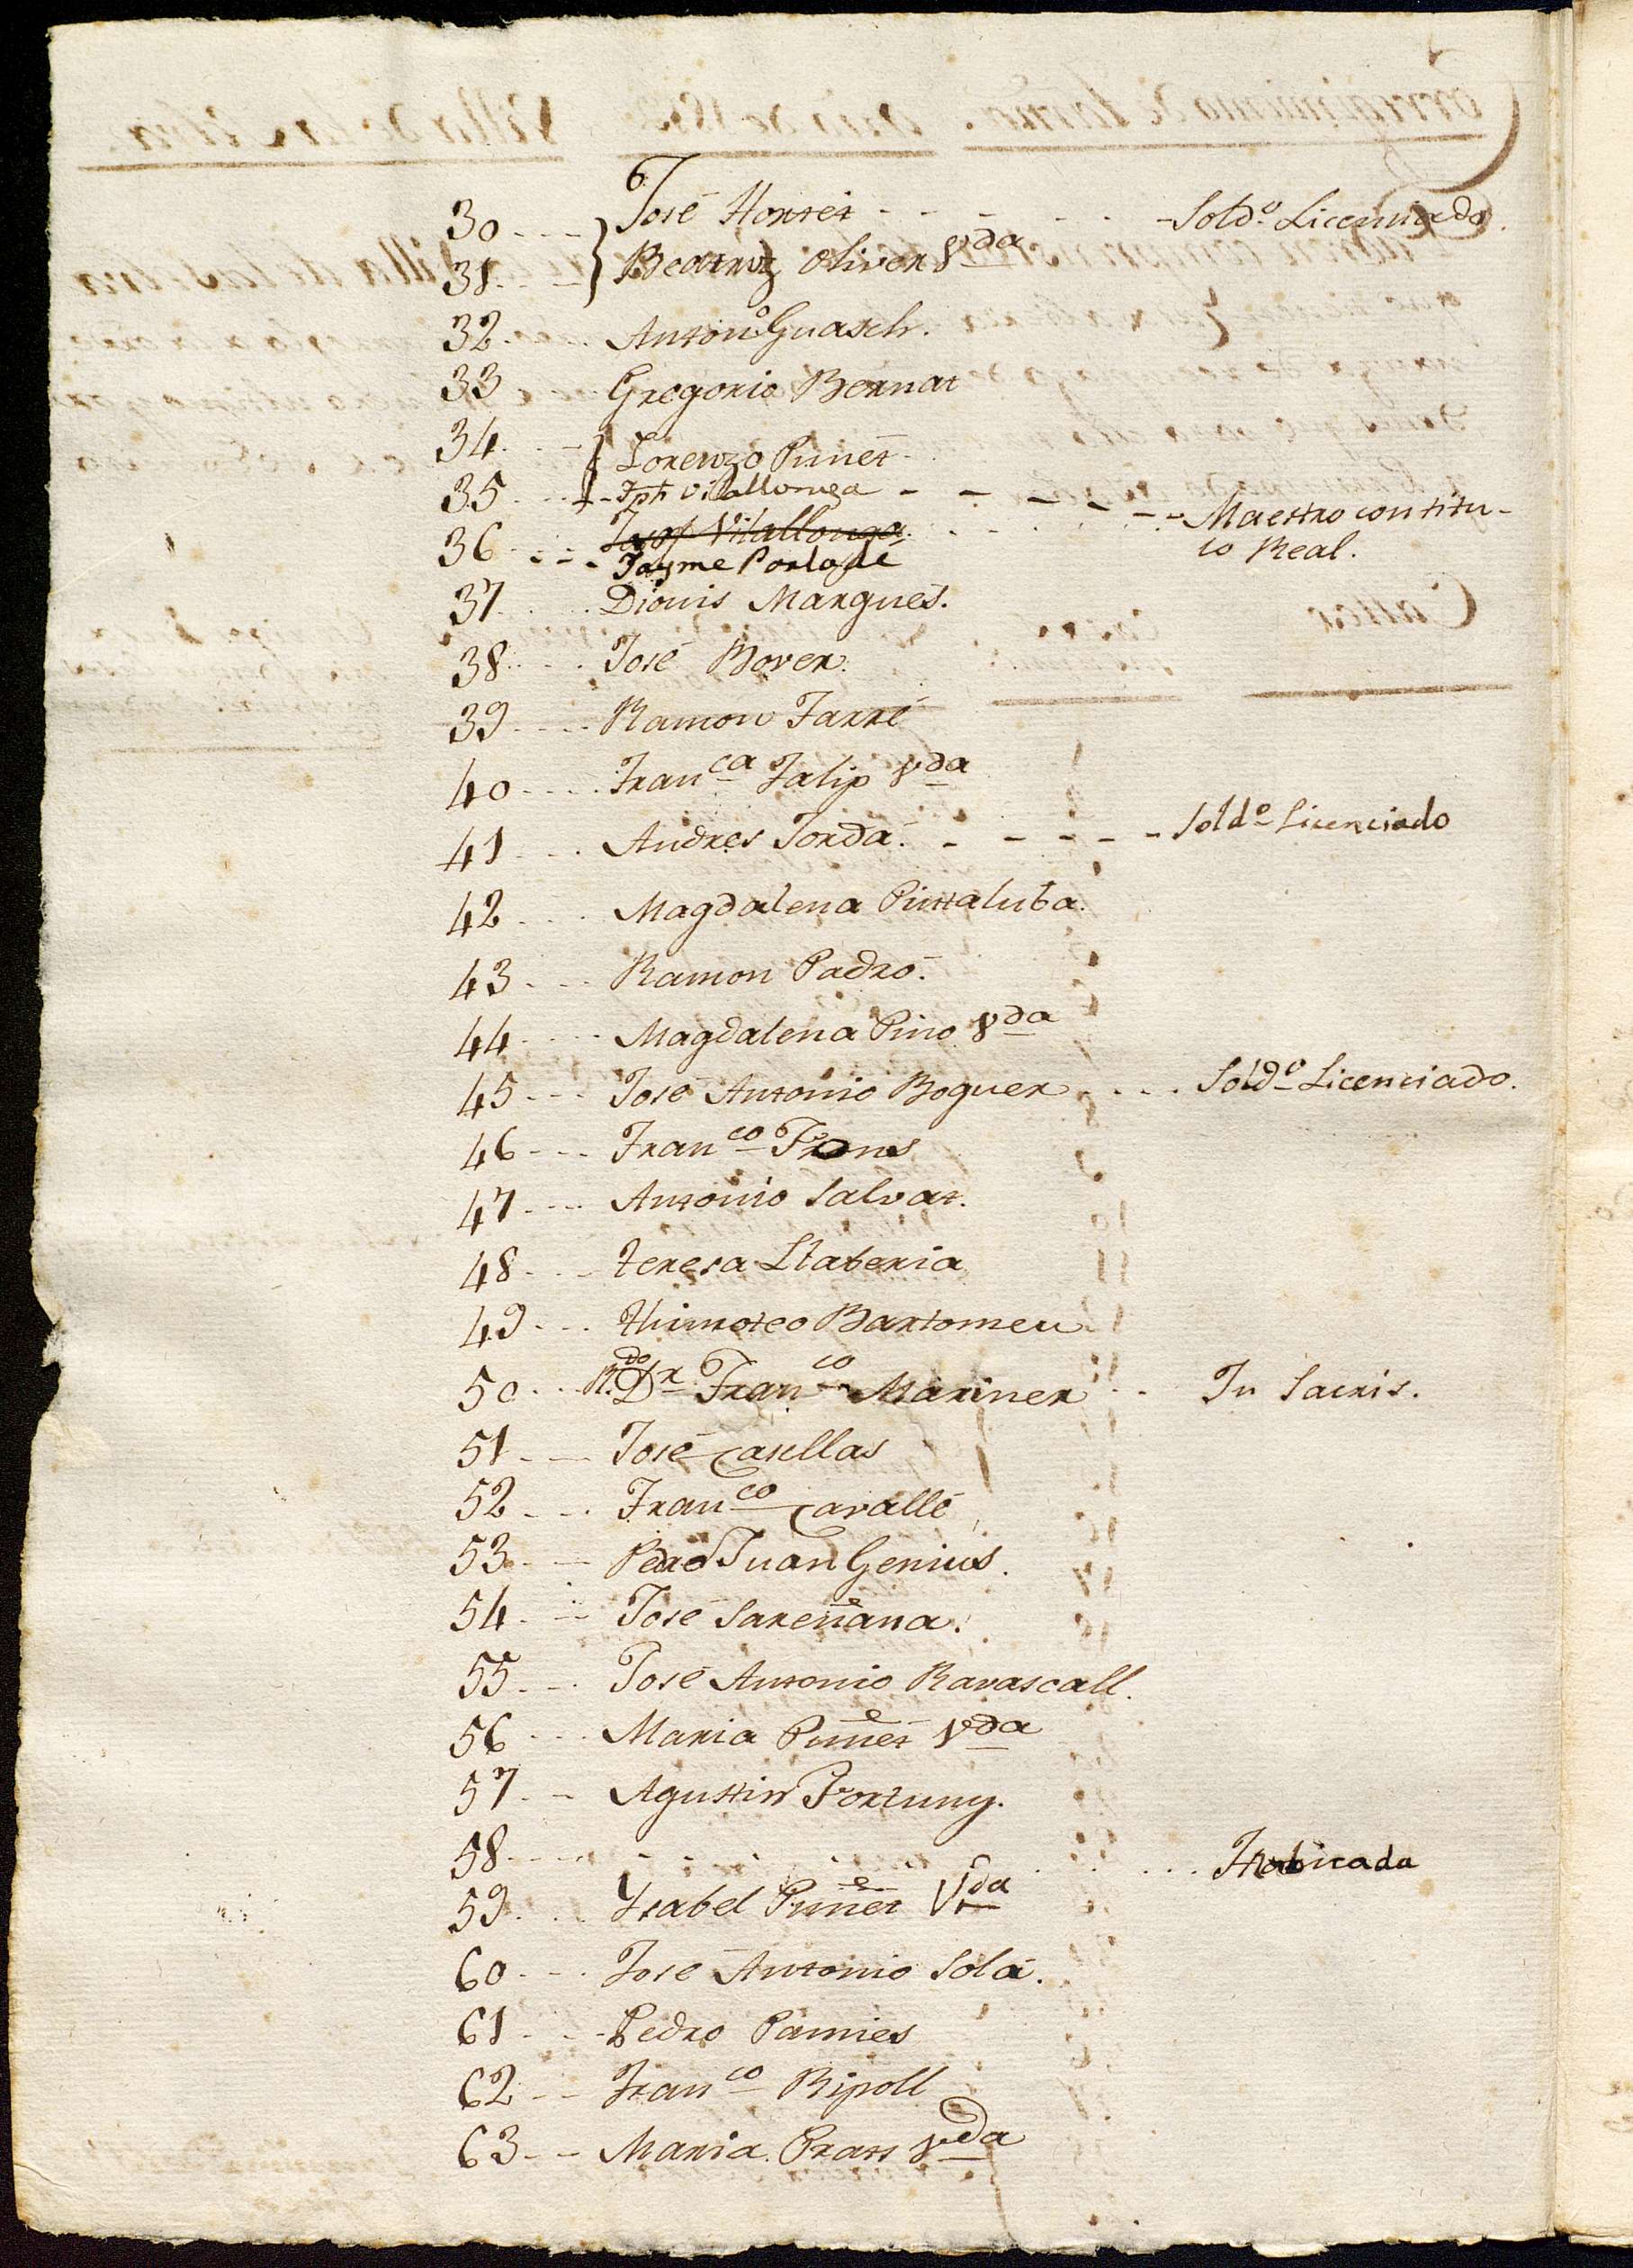 30 José Hortet Sold.o Licenciado.
31 Beatriz Oliver Vda
32 Anton.o Guasch.
33 Gregorio Bernat
34 Lorenzo Punet
35 Jph Vilallonga Maestro con titu-
lo Real.
36 Josef Vilallonga
Jayme Portolé
37 Dionis Margues.
38 José Bover.
39 Ramon Farré
40 Franca Falip Vda
41 Andres Jordá. Soldo Licenciado
42 Magdalena Pittaluba.
43 Ramon Padró.
44 Magdalena Pino Vda
45 José Antonio Boguer Soldo Licenciado.
46 Franco Fons
47 Antonio Salvat.
48 Teresa Llaberia
49 Thimoteo Bartomeu
50 R.do Dr Franco Mariner In Sacris.
51 José Casellas
52 Franco Cavallé
53 Pedro Juan Genius.
54 José Sareñana.
55 José Antonio Ravascall.
56 Maria Puñet Vda
57 Agustin Fortuny.
58 Inabicada
59 Ysabel Puñet Vda
60 José Antonio Solá.
61 Pedro Pamies
62 Franco Ripoll
63 Maria Prats Vda